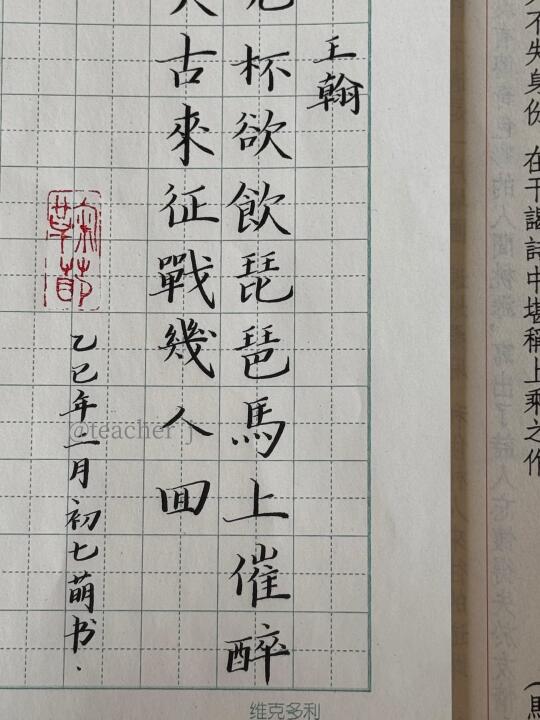 不失身份 在干謁詩中堪稱上乘之作
王翰
杯欲飲琵琶馬上催醉
古來征戰幾人囬
乙巳年二月初七萌书
@teacher j
维克多利